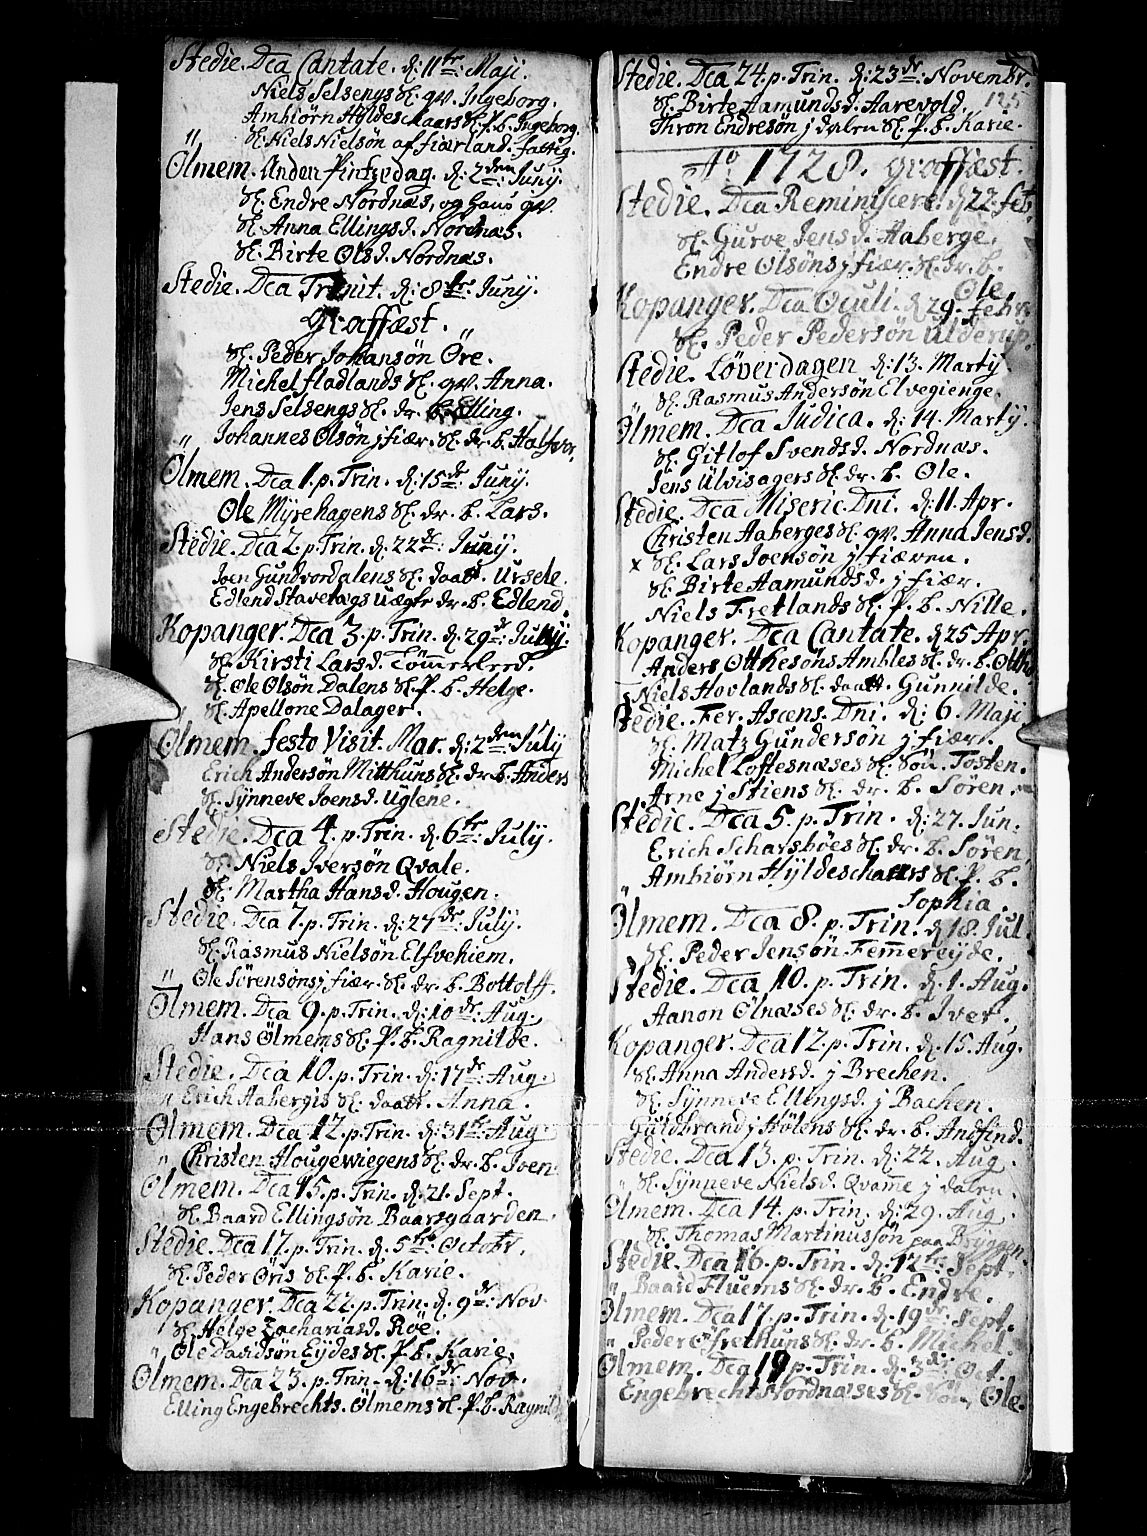 Stedie. Dca Cantate. d: 11te: Maji.
Niels Selsengs Sl. qv. Ingeborg.
Ambiørn Hyldeschaars Sl. P. b. Ingeborg.
" Sl. Niels Nielsøn af fiærland. fattig.
Ølmem. Anden Pintzedag. d: 2den: Junij.
Sl. Endre Nordnæs, og hans qv.
Sl. Anna Ellingsd. Nordnæs.
Sl. Birte Olsd. Nordnæs.
Stedie. Dca Trinit. d: 8te: Junij.
graffæst.
Sl. Peder Johansøn Öre.
Michel fladlands Sl. qv. Anna.
Jens Selsengs Sl. dr. b. Elling.
" Johannes Olsøn j fiær. Sl. dr. b. Halfvor.
Ølmem. Dca 1. p. Trin. d: 15de: Junij.
Ole Myrehagens Sl. dr. b. Lars.
Stedie. Dca 2. p. Trin. d: 22de: Junij.
Joen Gundvordalens Sl. daatt. Ursele.
Edlend Stavetægs Uægte dr. b. Edlend.
Kopanger. Dca 3. p. Trin. d. 29de: Junij.
Sl. Kirsti Larsd. Tömerleed.
Sl. Ole Olsøn Dalens Sl. P. b. Helge.
" Sl. Apellone Dalager.
Ølmem. festo Visit. Mar. d: 2den: July
Erich Andersøn Mitthuns Sl. dr. b. Anders
Sl. Synneve Joensd. Uglene.
Stedie. Dca 4. p. Trin. d: 6te: July.
Sl. Niels Iversøn Qvale.
Sl. Martha Hansd. Hougen.
Stedie. Dca 7. p. Trin. d: 27de: July.
Sl. Rasmus Nielsøn Elfvekiem.
" Ole Sörensöns j fiær. Sl. dr. b. Bottolff.
Ølmem. Dca 9. p. Trin. d: 10de: Aug.
Hans Ølmems Sl. P. b. Ragnilde.
Stedie. Dca 10. p. Trin. d: 17de: Aug.
" Erich Aabergis Sl. daatt. Anna.
Ølmem. Dca 12. p. Trin. d: 31te: Aug.
" Christen Hougewiegens Sl. dr. b. Joen.
Ølmem. Dca 15. p. Trin. d: 21. Sept.
Sl. Baard Ellingsøn Baarsgaarden.
Stedie. Dca 17. p. Trin. d. 5te: Octobr.
Sl. Peder Öris Sl. P. b. Karie.
Kopanger. Dca 22. p. Trin. d. 9de: Nov.
Sl. Helge Zachariasd. Röe.
" Ole Davidsøn Eydes Sl. P. b. Karie.
Ølmem. Dca 23. p. Trin. d: 16de: Nov.
Elling Engebrechts. Ølmems Sl. P. b. Ragnild
Stedie. Dca 24. p. Trin. d: 23de: Novembr.
125
Sl. Birte Aamundsd. Aarevold.
Thron Endresøn j dalen Sl. P. b. Karie.
Ao 1728. graffæst.
Stedie. Dca Reminiscere. d. 22. feb.
Sl. Gurve Jensd. Aaberge.
Endre Olsøns j fiær. Sl. dr. b. Ole
Kopanger. Dca Oculi. d. 29. febr.
Sl. Peder Pedersøn Ulderup.
Stedie. Löverdagen d: 13. Marty.
Sl. Rasmus Andersøn Elvegienge.
Ølmem. Dca Judica. d: 14. Marty.
Sl. Gitlof Svendsd. Nordnæs.
Jens Ulvisagers Sl. dr. b. Ole.
Stedie. Dca Miseric. Dni. d: 11. Apr.
Christen Aaberges Sl. qv. Anna Jensd.
x Sl. Lars Joensøn j fiæren.
Sl. Birte Aamundsd. j fiær.
Niels Fretlands Sl. P. b. Nille.
Kopanger. Dca Cantate. d. 25 Apr.
Anders Otthesøns Ambles Sl. dr. b. Otthe
Niels Hovlands Sl. daatt. Gunnilde.
Stedie. Fer. Ascens. Dni. d: 6. Maji
Sl. Matz Gundersøn j fiær.
Michel Loftesnæses Sl. Søn. Tosten.
Arne j Stiens Sl. dr. b. Sören.
Stedie. Dca 5. p. Trin. d: 27. Jun.
Erich Scharsböes Sl. dr. b. Sören.
" Ambiørn Hyldeschaars Sl. P. b. Sophia.
Ølmem. Dca 8. p. Trin. d. 18. Jul.
Sl. Peder Jensøn Femereyde.
Stedie. Dca 10. p. Trin. d. 1. Aug.
Aanon Ølnæses Sl. dr. b. Iver.
Kopanger. Dca 12. p. Trin. d. 15. Aug.
Sl. Anna Andersd. j Brechen.
Sl. Synneve Ellingsd. j Bachen.
Guldbrand j Hölens Sl. dr. b. Andfind.
Stedie. Dca 13. p. Trin. d: 22. Aug.
" Sl. Synneve Nielsd. Qvame j dalen.
Ølmem. Dca 14. p. Trin. d: 29. Aug.
Sl. Thomas Martinussøn paa Bryggen.
Stedie. Dca 16. p. Trin. d: 12te: Sept.
" Baard Fluems Sl. dr. b. Endre.
Ølmem. Dca 17. p. Trin. d. 19de: Sept.
" Peder Ofrethuns Sl. dr. b. Michel.
Ølmem. Dca 19 p. Trin. d. 3die Oct.
Engebrecht Nordnæses Sl. Søn Ole.